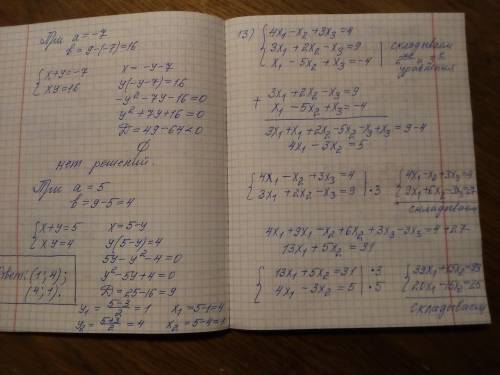 При a=-7
b=9-(-7)=16
{x+y=-7
xy=16
x=-y-7
y(-y-7)=16
-y²-7y-16=0
y²+7y+16=0
D=49-64<0
∅
нет решений.
При a=5
b=9-5=4
{x+y=5
xy=4
x=5-y
y(5-y)=4
5y-y²-4=0
y²-5y+4=0
D=25-16=9
y₁=(5-3)/2=1 x₁=5-1=4
y₂=(5+3)/2=4 x₂=5-4=1
Ответ: (1;4);
(4;1).
13) {4x₁-x₂+3x₃=4
3x₁+2x₂-x₃=9
x₁-5x₂+x₃=-4
складываем
уравнения
+ 3x₁+2x₂-x₃=9
x₁-5x₂+x₃=-4
3x₁+x₁+2x₂-5x₂-x₃+x₃=9-4
4x₁-3x₂=5
{4x₁-x₂+3x₃=4
3x₁+2x₂-x₃=9 |·3
{4x₁-x₂+3x₃=4
9x₁+6x₂-3x₃=27
складываем
4x₁+9x₁-x₂+6x₂+3x₃-3x₃=4+27
13x₁+5x₂=31
{13x₁+5x₂=31 |·3
4x₁-3x₂=5 |·5
{39x₁+15x₂=93
20x₁-15x₂=25
складываем